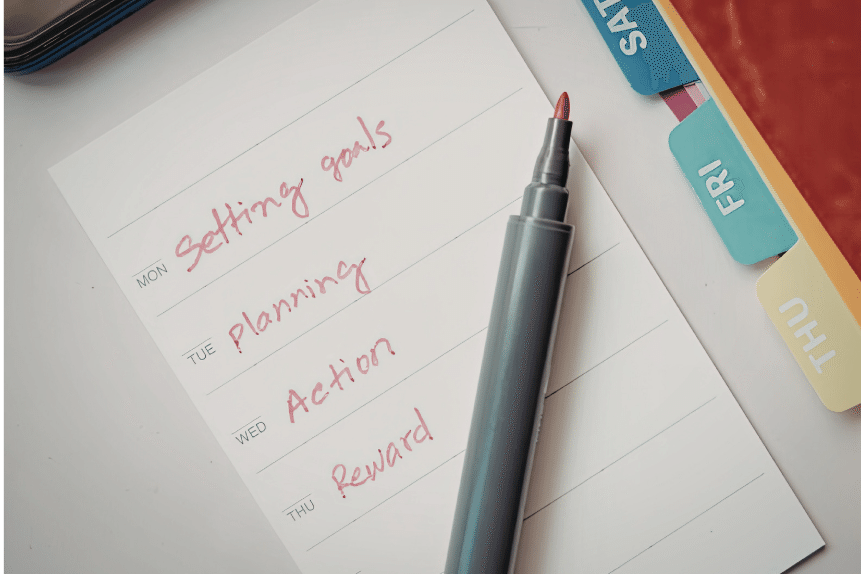 MON Setting goals
TUE Planning
WED Action
THU Reward
SAT
FRI
THU